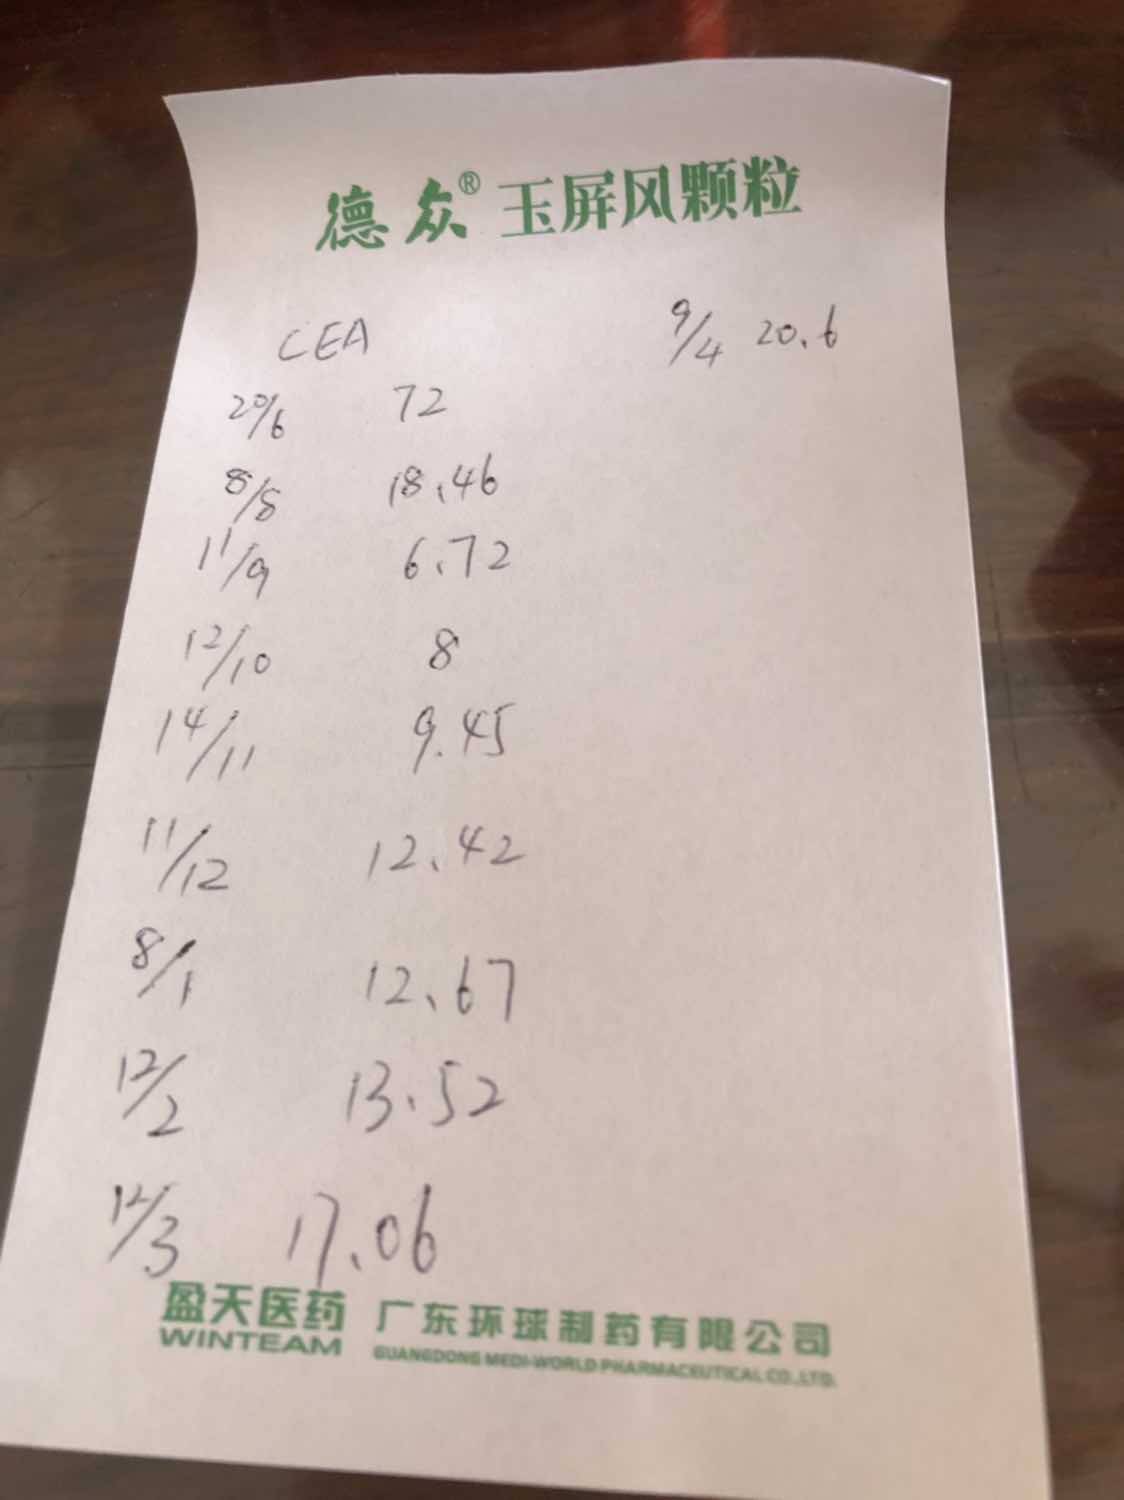 德众® 玉屏风颗粒
CEA
20/6 72
8/8 18.46
11/9 6.72
12/10 8
14/11 9.45
11/12 12.42
8/1 12.67
12/2 13.52
12/3 17.06
9/4 20.6
盈天医药 广东环球制药有限公司
WINTEAM GUANGDONG MEDI-WORLD PHARMACEUTICAL CO.,LTD.